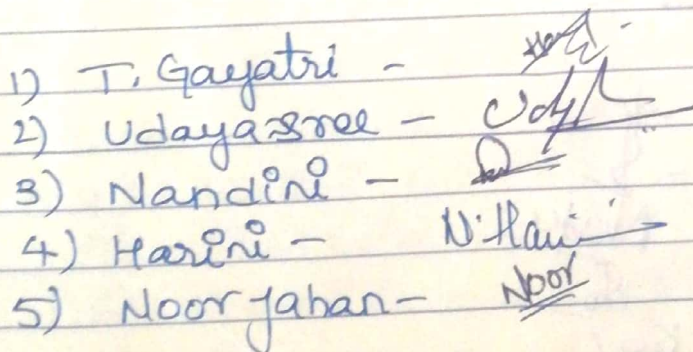 1) T. Gayatri -
2) Udayasree - Udy
3) Nandini -
4) Harini - N. Hari
5) Noor jahan - Noor